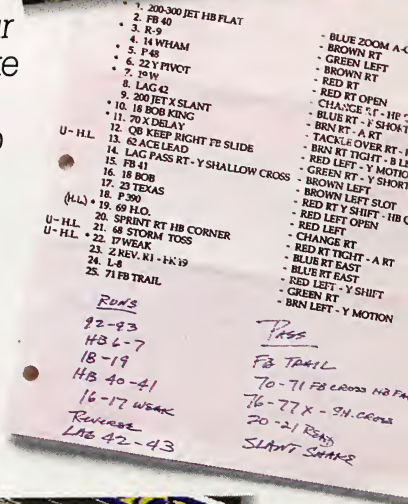 • 1. 200-300 JET HB FLAT
2. FB 40
• 3. R-9
4. 14 WHAM
• 5. P48
• 6. 22 Y PIVOT
• 7. 19 W
8. LAG 42
9. 200 JET X SLANT
• 10. 18 BOB KING
• 11. 70 X DELAY
U-H.L. 12. QB KEEP RIGHT FB SLIDE
• 13. 62 ACE LEAD
14. LAG PASS RT - Y SHALLOW CROSS
15. FB 41
16. 18 BOB
17. 23 TEXAS
(H.L.) • 18. P 390
• 19. 69 H.O.
U-H.L. 20. SPRINT RT HB CORNER
U-H.L. • 21. 68 STORM TOSS
22. 17 WEAK
23. Z REV. RT -
24. L-8
25. 71 FB TRAIL
- BLUE ZOOM A-
- BROWN RT
- GREEN LEFT
- BROWN RT
- RED RT
- RED RT OPEN
- CHANGE RT - HB
- BLUE RT - F SHORT
- BRN RT - A RT
- TACKLE OVER RT -
- BRN RT TIGHT - B
- RED LEFT - Y MOTIO
- GREEN RT - Y SHORT
- BROWN LEFT
- BROWN LEFT SLOT
- RED RT Y SHIFT - HB
- RED LEFT OPEN
- RED LEFT
- CHANGE RT
- RED RT TIGHT - A RT
- BLUE RT EAST
- BLUE RT EAST
- RED LEFT - Y SHIFT
- GREEN RT
- BRN LEFT - Y MOTION
RUNS
92-93
HB 6-7
18-19
HB 40-41
16-17 WEAK
REVERSE
LAG 42-43
PASS
FB TRAIL
70-71 FB CROSS HB
76-77 X - CROSS
20-21 READ
SLANT SHAKE